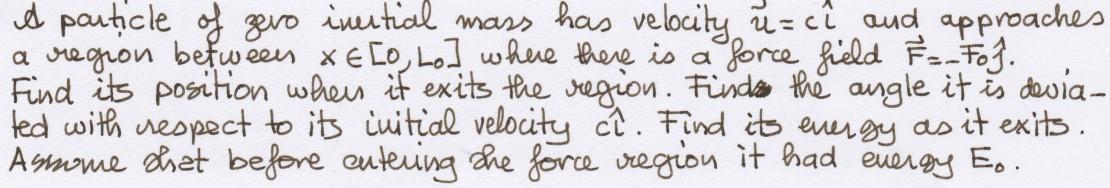 A particle of zero inertial mass has velocity u⃗ = cî and approaches
a region between x ∈ [0, L₀] where there is a force field F⃗ = -F₀ĵ.
Find its position when it exits the region. Find the angle it is devia-
ted with respect to its initial velocity cî. Find its energy as it exits.
Assume that before entering the force region it had energy E₀.